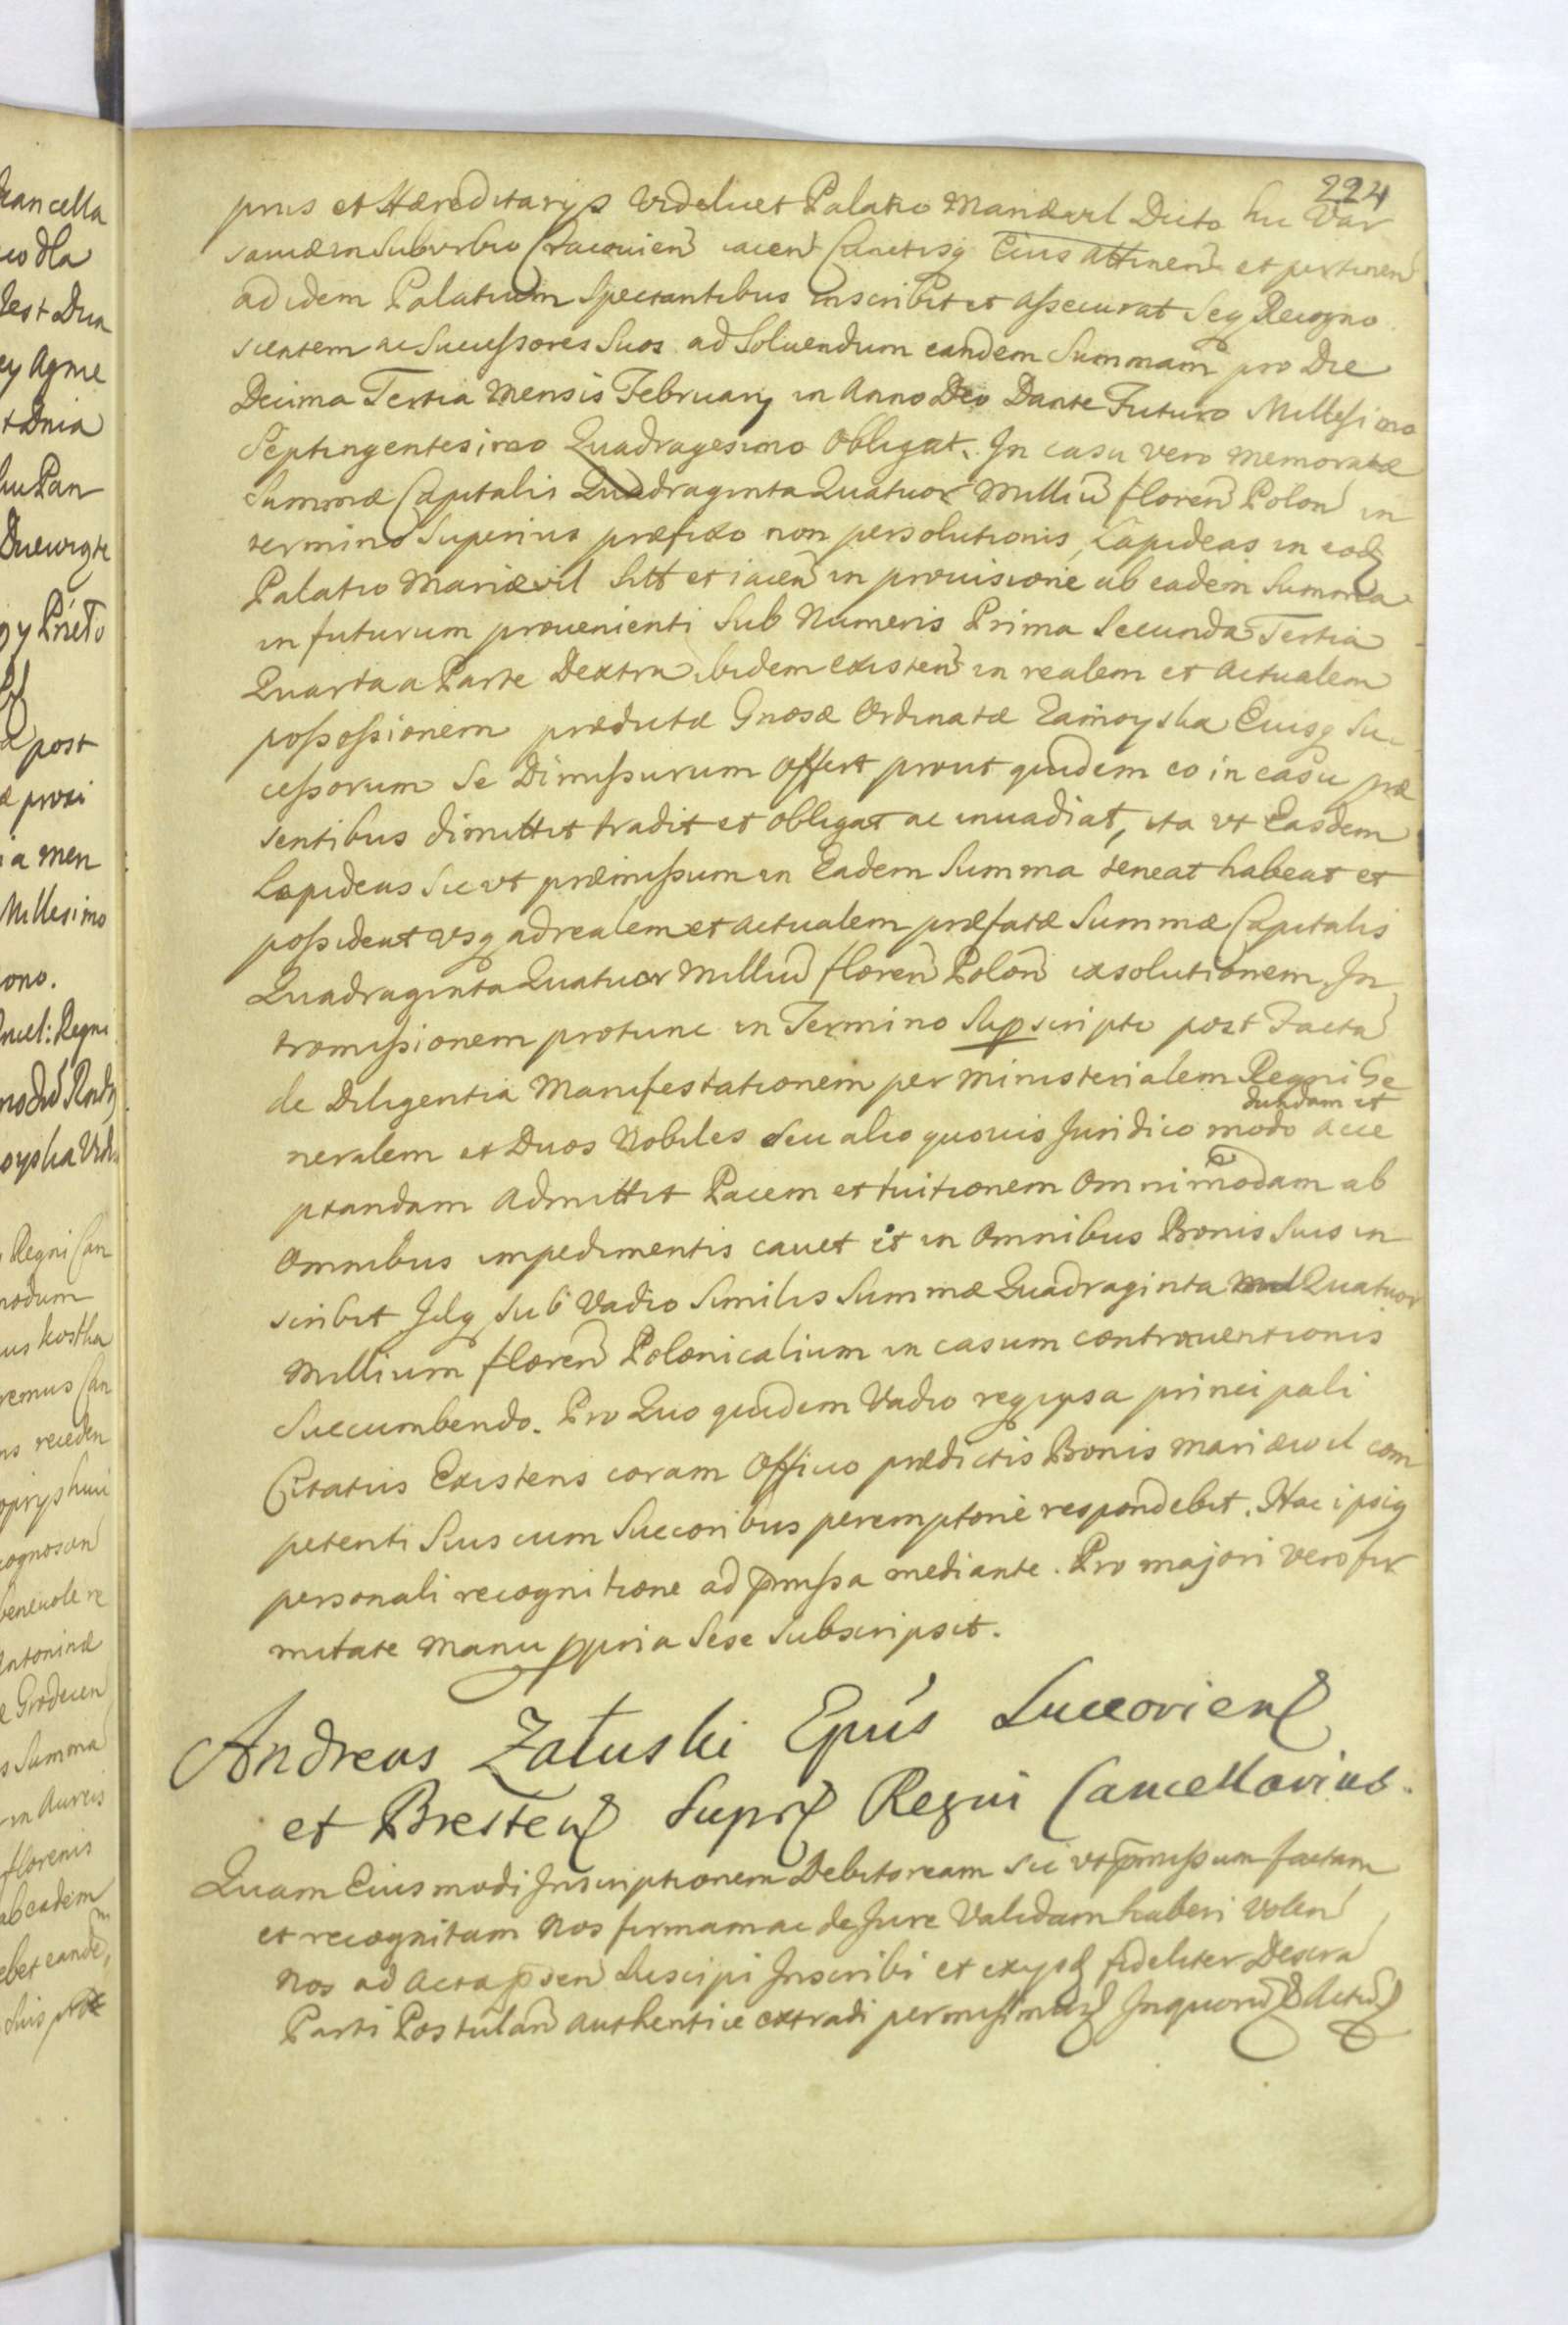 224
prys et Hæreditarys Videlicet Palatio Mariævil Dicto hic Var
saviæ in Suburbio Cracovien̄ iacen̄ Cunctisq Eius attinen̄ et pertinen̄
ad idem Palatium Spectantibus inscribit et assecurat Seq Recogno
scentem ac Sucessores Suos ad Soluendum eandem Summam pro Die
Decima Tertia Mensis February in Anno Deo Dante Futuro Millesimo
Septingentesimo Quadragesimo obligat. In casu vero memoratæ
Summæ Capitalis Quadraginta Quatuor Milliū floren̄ Polon̄ in
termino Superius præfixo non persolutionis, Lapideas in eodę
Palatio Mariævil Sitt et iacen̄ in provisione ab eadem Summa
in futurum provenienti Sub Numeris Prima Secunda Tertia
Quarta a Parte Dextra ibidem existen̄ in realem et actualem
possessionem prædictæ Gnosæ Ordinatæ Zamoyska Eiusq Suc
cessorum Se Dimissurum offert prout quidem eo in casu præ
sentibus dimittit tradit et obligat ac inuadiat, ita vt Easdem
Lapideas Sic vt præmissum in Eadem Summa teneat habeat et
possideat vsq ad realem et actualem præfatæ Summæ Capitalis
Quadraginta Quatuor Milliū floren̄ Polon̄ exsolutionem, In
tromissionem protunc in Termino Supscripto post Facta
de Diligentia Manifestationem per Ministerialem Regni Ge
neralem et Duos Nobiles Seu alio quovis Juridico modo dandam et acce
ptandam admittit Pacem et tuitionem omnimodam ab
omnibus impedimentis cauet et in omnibus Bonis Suis in
scribit Idq Sub Vadio Similis Summæ Quadraginta Quatuor
Millium floren̄ Polonicalium in casum contrauentionis
Succumbendo. Pro Quo quidem Vadio req ipsa principali
Citatus Existens coram Officio prædictis Bonis Mariævil com
petenti Suis cum Succoribus peremptorie respondebit. Hac ipsiq
personali recognitione ad pmissa mediante. Pro majori vero fir
mitate manu ppria Sese Subscripsit.
Andreas Załuski Epūs Luceorien̄
et Bresten̄ Supr̄ Regni Cancellarius.
Quam Eiusmodi Inscriptionem Debitoream sic vt pmissum factam
et recognitam Nos firmam ac de Jure Validam haberi volen̄
Nos ad acta psen̄ Suscipi Inscribi et exysdę fideliter Descra
Parti Postulan̄ authentice extradi permisimus Inquorū Actū